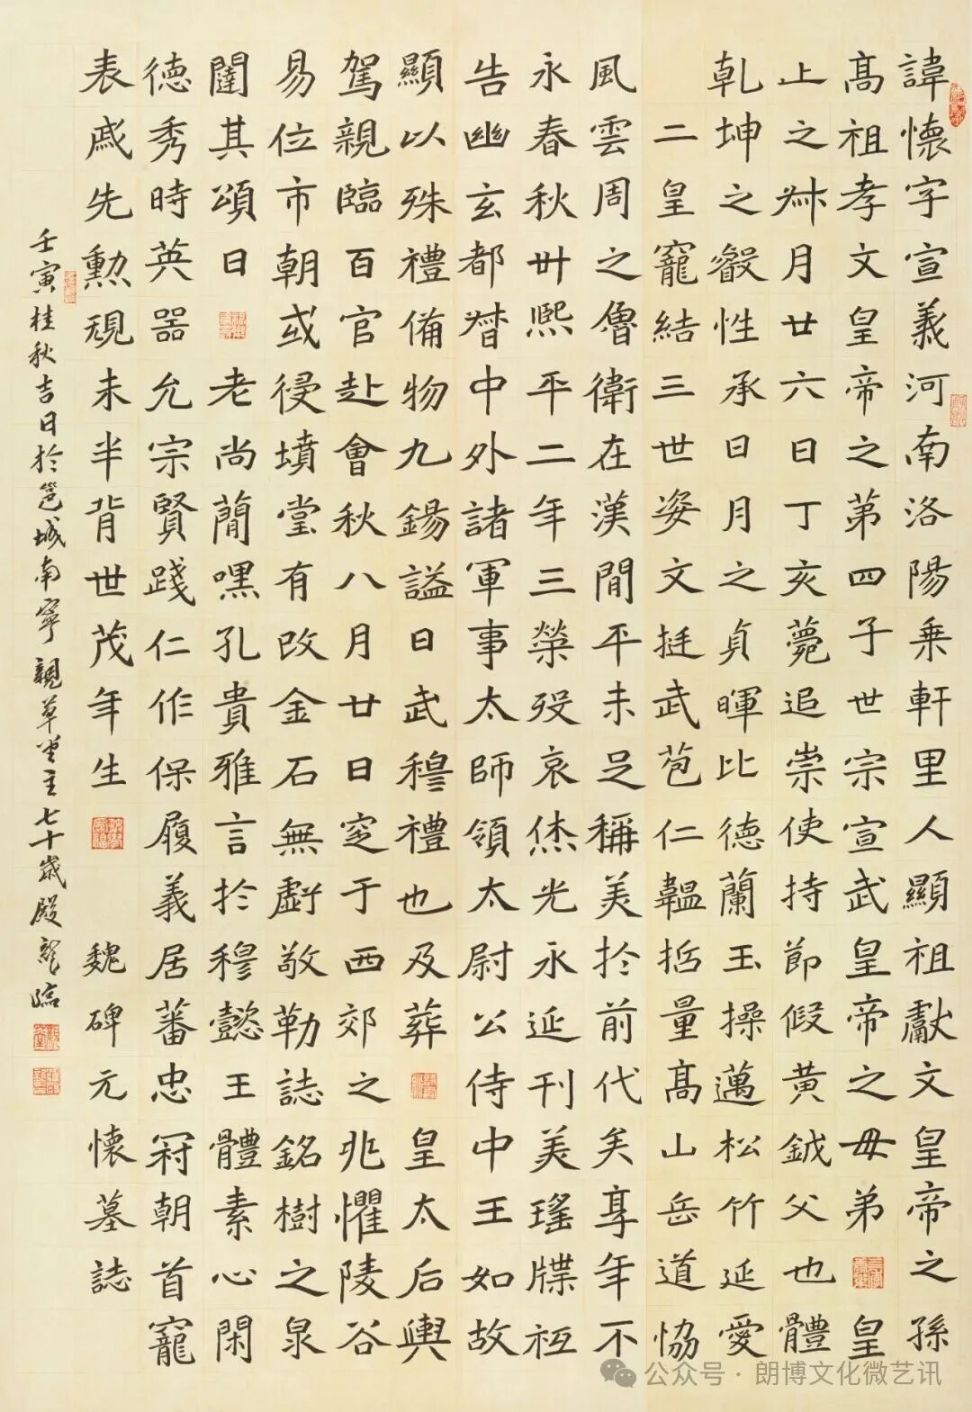 諱懷字宣義河南洛陽乘軒里人顯祖獻文皇帝之孫
髙祖孝文皇帝之第四子世宗宣武皇帝之毋弟皇
上之叔月廿六日丁亥薨追崇使持節假黄鉞父也體
乹坤之叡性承日月之貞暉比德蘭玉操邁松竹延愛
二皇寵結三世姿文挺武苞仁韞哲量髙山岳道協
風雲周之魯衛在漢間平未足稱美於前代矣享年不
永春秋廿熙平二年三榮歿哀傷光永延刊美瑤牒衽
告幽玄都督中外諸軍事太師領太尉公侍中王如故
顯以殊禮備物九錫謚曰武穆禮也及葬皇太后輿
駕親臨百官赴會秋八月廿日窆于西郊之兆懼陵谷
易位市朝或侵墳堂有改金石無虧敬勒誌銘樹之泉
闥其頌曰老尚簡嘿孔貴雅言於穆懿王體素心閑
德秀時英器允宗賢踐仁作保履義居蕃忠冠朝首寵
表戚先勲規未半背世茂年生
魏碑元懷墓誌
壬寅桂秋吉日於邕城南寧親草堂主七十歲殷龍臨
公众号·朗博文化微艺讯